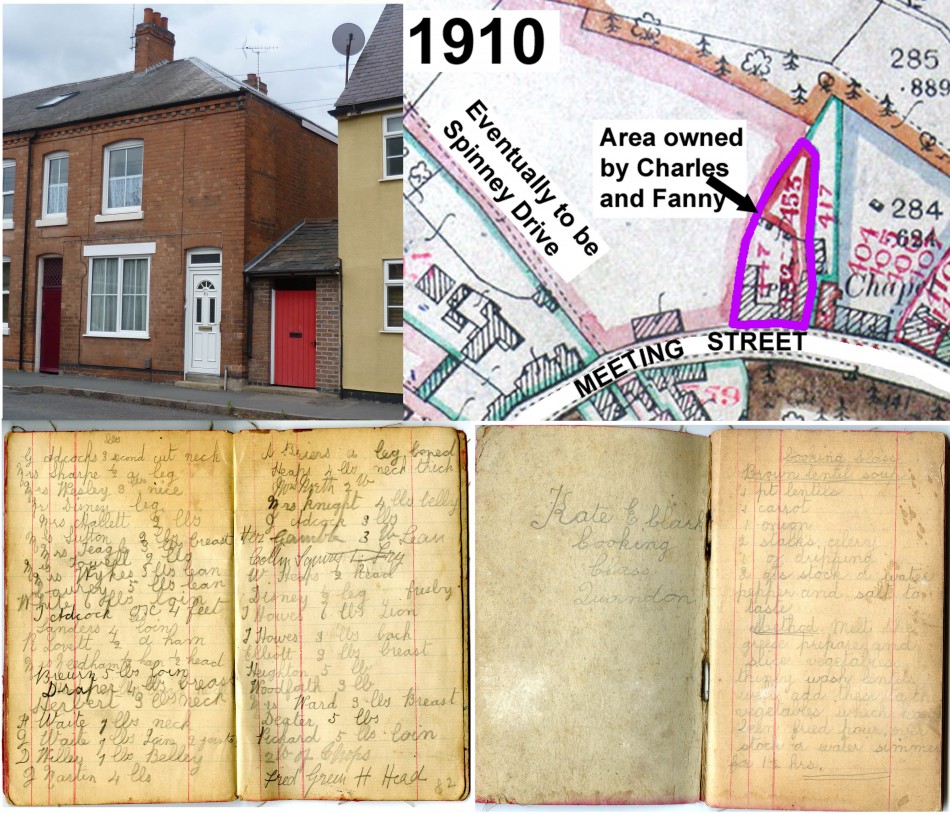 1910
Eventually to be
Spinney Drive
Area owned
by Charles
and Fanny
285
.889
284
455
417
Chap
MEETING STREET
lbs
G Adcocks 3 second cut neck
Mrs Sharpe ½ a leg
Mrs Wesley 3 nice
Mr Disney leg
Mrs Hallett 2 lbs
Mrs Sutton 2 lbs breast
Mrs Teagle
Mrs Wykes 3 lbs lean
5 lbs lean
White 6 lbs loin
T Adcock 4 feet
Sanders 4 loin
N Lovett ½ a ham
Mrs Needham ham ½ head
Brewin 5 lbs loin
Draper 4 lbs breast
Herbert 3 lbs neck
H Waite 7 lbs neck
G Waite 7 lbs Loin 2 joints
D Willey 7 lbs Belley
J Martin 4 lbs
A Briers a leg boned
Heaps 4 lbs neck thick
Mrs Knight 4 lbs belly
J Adcock 3 lbs
Hor Gamble 3 lb Lean
Colly Squires 1 Fry
W Heaps ½ Head
Disney ½ leg frisby
T Howes 6 lbs Lion
T Howes 3 lbs back
Elliott 2 lbs breast
Heighton 5 lb
Woolloth 3 lb
Mrs Ward 3 lbs Breast
Dexter 5 lbs
Pickard 5 lbs loin
2 lb of Chops
Fred Green H Head £2
Kate E Clark
Cooking
Class
Quorndon
Cooking Class
Brown lentil soup
pt lentils
1 carrot
1 onion
2 stalks celery
of dripping
3 pts stock or water
pepper and salt to
taste
Method Melt the
grease prepare and
slice vegetables
wash lentils
add these to
vegetables which have
been fried pour over
stock or water simmer
for 1½ hrs.